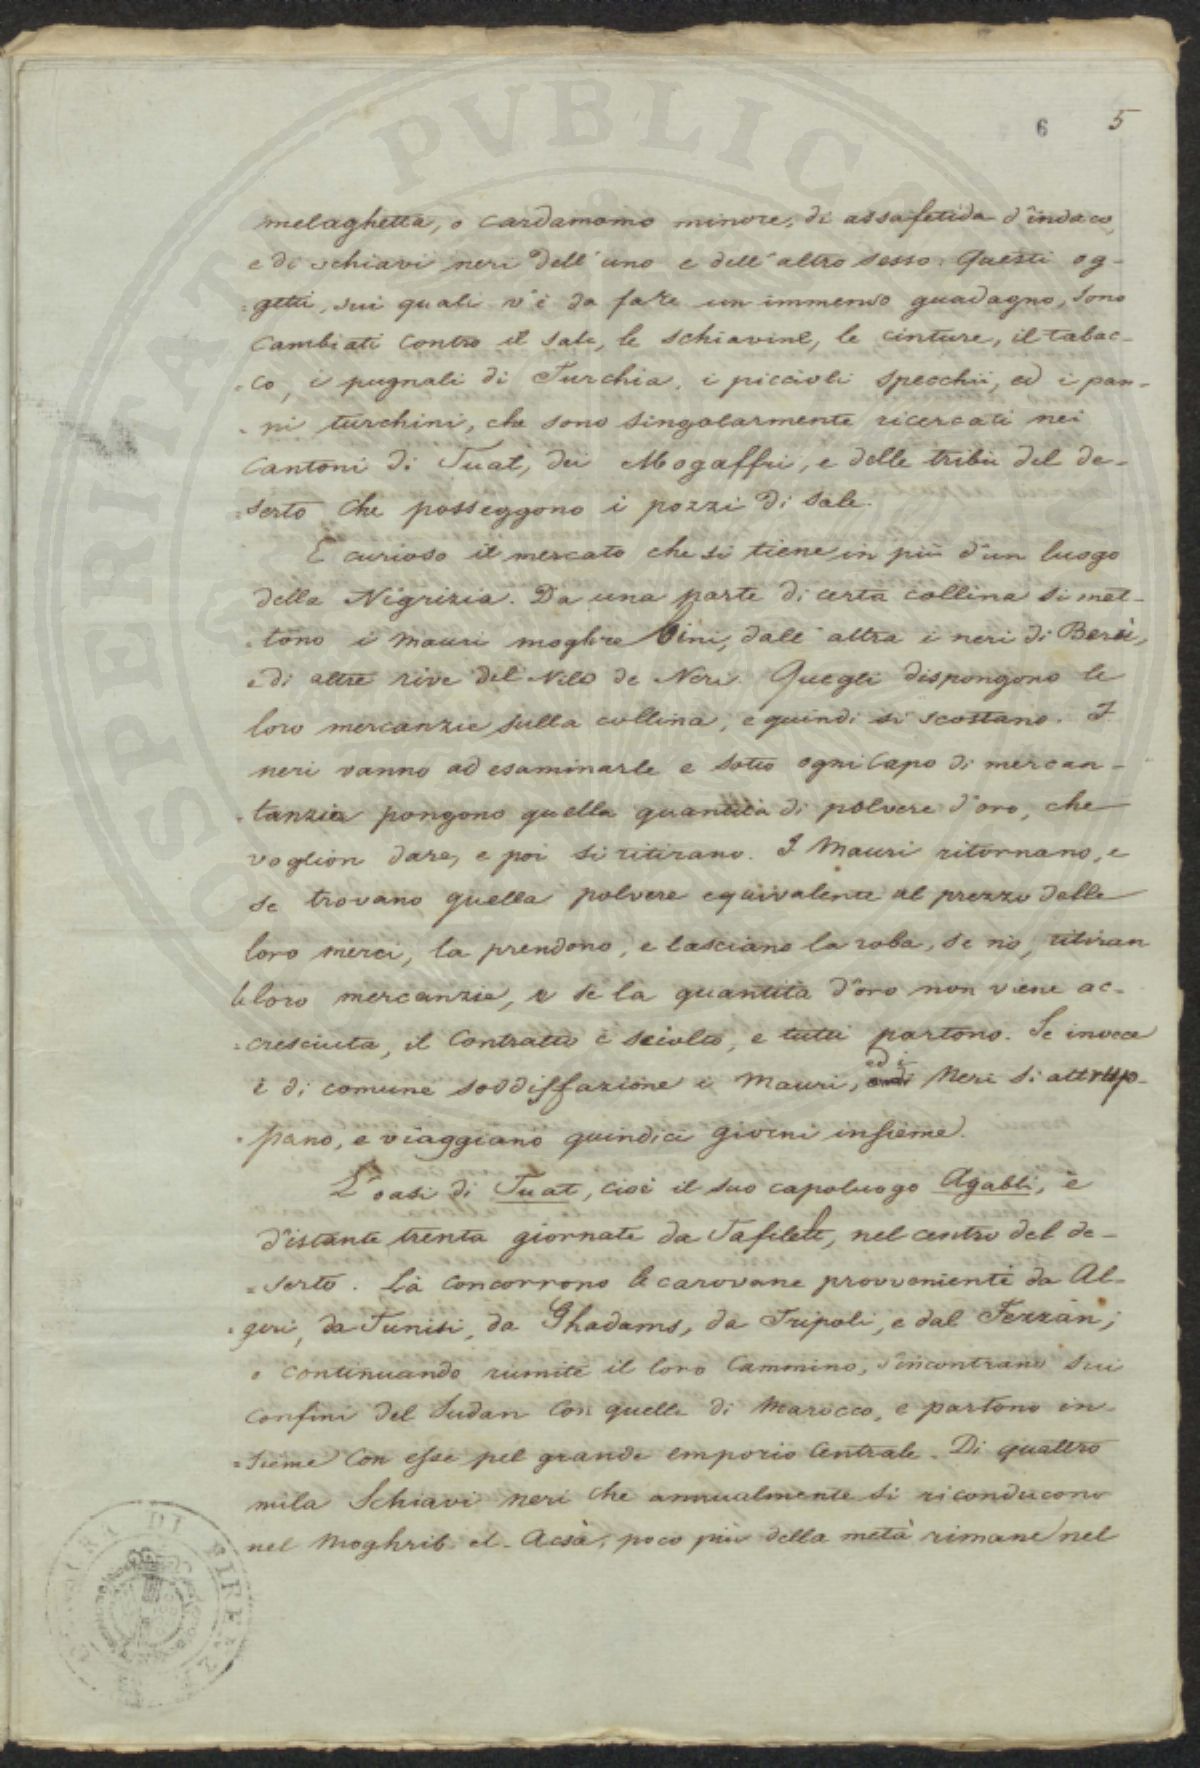 6 5
melaghetta, o cardamomo minore, di assafetida d'indaco,
e di schiavi neri dell'uno e dell'altro sesso. Questi og-
=getti, sui quali v'è da fare un immenso guadagno, sono
cambiati contro il sale, le schiavine, le cinture, il tabac-
=co, i pugnali di Turchia, i piccioli specchii, ed i pan-
=ni turchini, che sono singolarmente ricercati nei
Cantoni di Tuat, dei Mogaffri, e delle tribù del de-
=serto che posseggono i pozzi di sale.
È curioso il mercato che si tiene in più d'un luogo
della Nigrizia. Da una parte di certa collina si met-
=tono i mauri moghrebini, dall'altra i neri di
e di altre rive del Nilo de Neri. Quegli dispongono le
loro mercanzie sulla collina, e quindi si scostano. I
neri vanno ad esaminarle e sotto ogni Capo di mercan-
=tanzia pongono quella quantità di polvere d'oro, che
voglion dare, e poi si ritirano. I Mauri ritornano, e
se trovano quella polvere equivalente al prezzo delle
loro merci, la prendono, e lasciano la roba, se nò, ritiran
le loro mercanzie, e se la quantità d'oro non viene ac-
=cresciuta, il Contratto è sciolto, e tutti partono. Se invece
è di comune soddisfazione i Mauri, ed i Neri si attrup-
=pano, e viaggiano quindici giorni insieme.
L'oasi di Tuat, cioè il suo capoluogo Agabli, è
distante trenta giornate da Tafilelt, nel centro del de-
=serto. Là concorrono le carovane provvenienti da Al-
=geri, da Tunisi, da Ghadams, da Tripoli, e dal Fezzàn;
e continuando riunite il loro Cammino, s'incontrano sui
confini del Sudan con quelle di Marocco, e partono in-
=sieme con esse pel grande emporio Centrale. Di quattro
mila Schiavi neri che annualmente si riconducono
nel Moghrib-el-Acsà, poco più della metà rimane nel
PVBLICA
DI FIRENZE